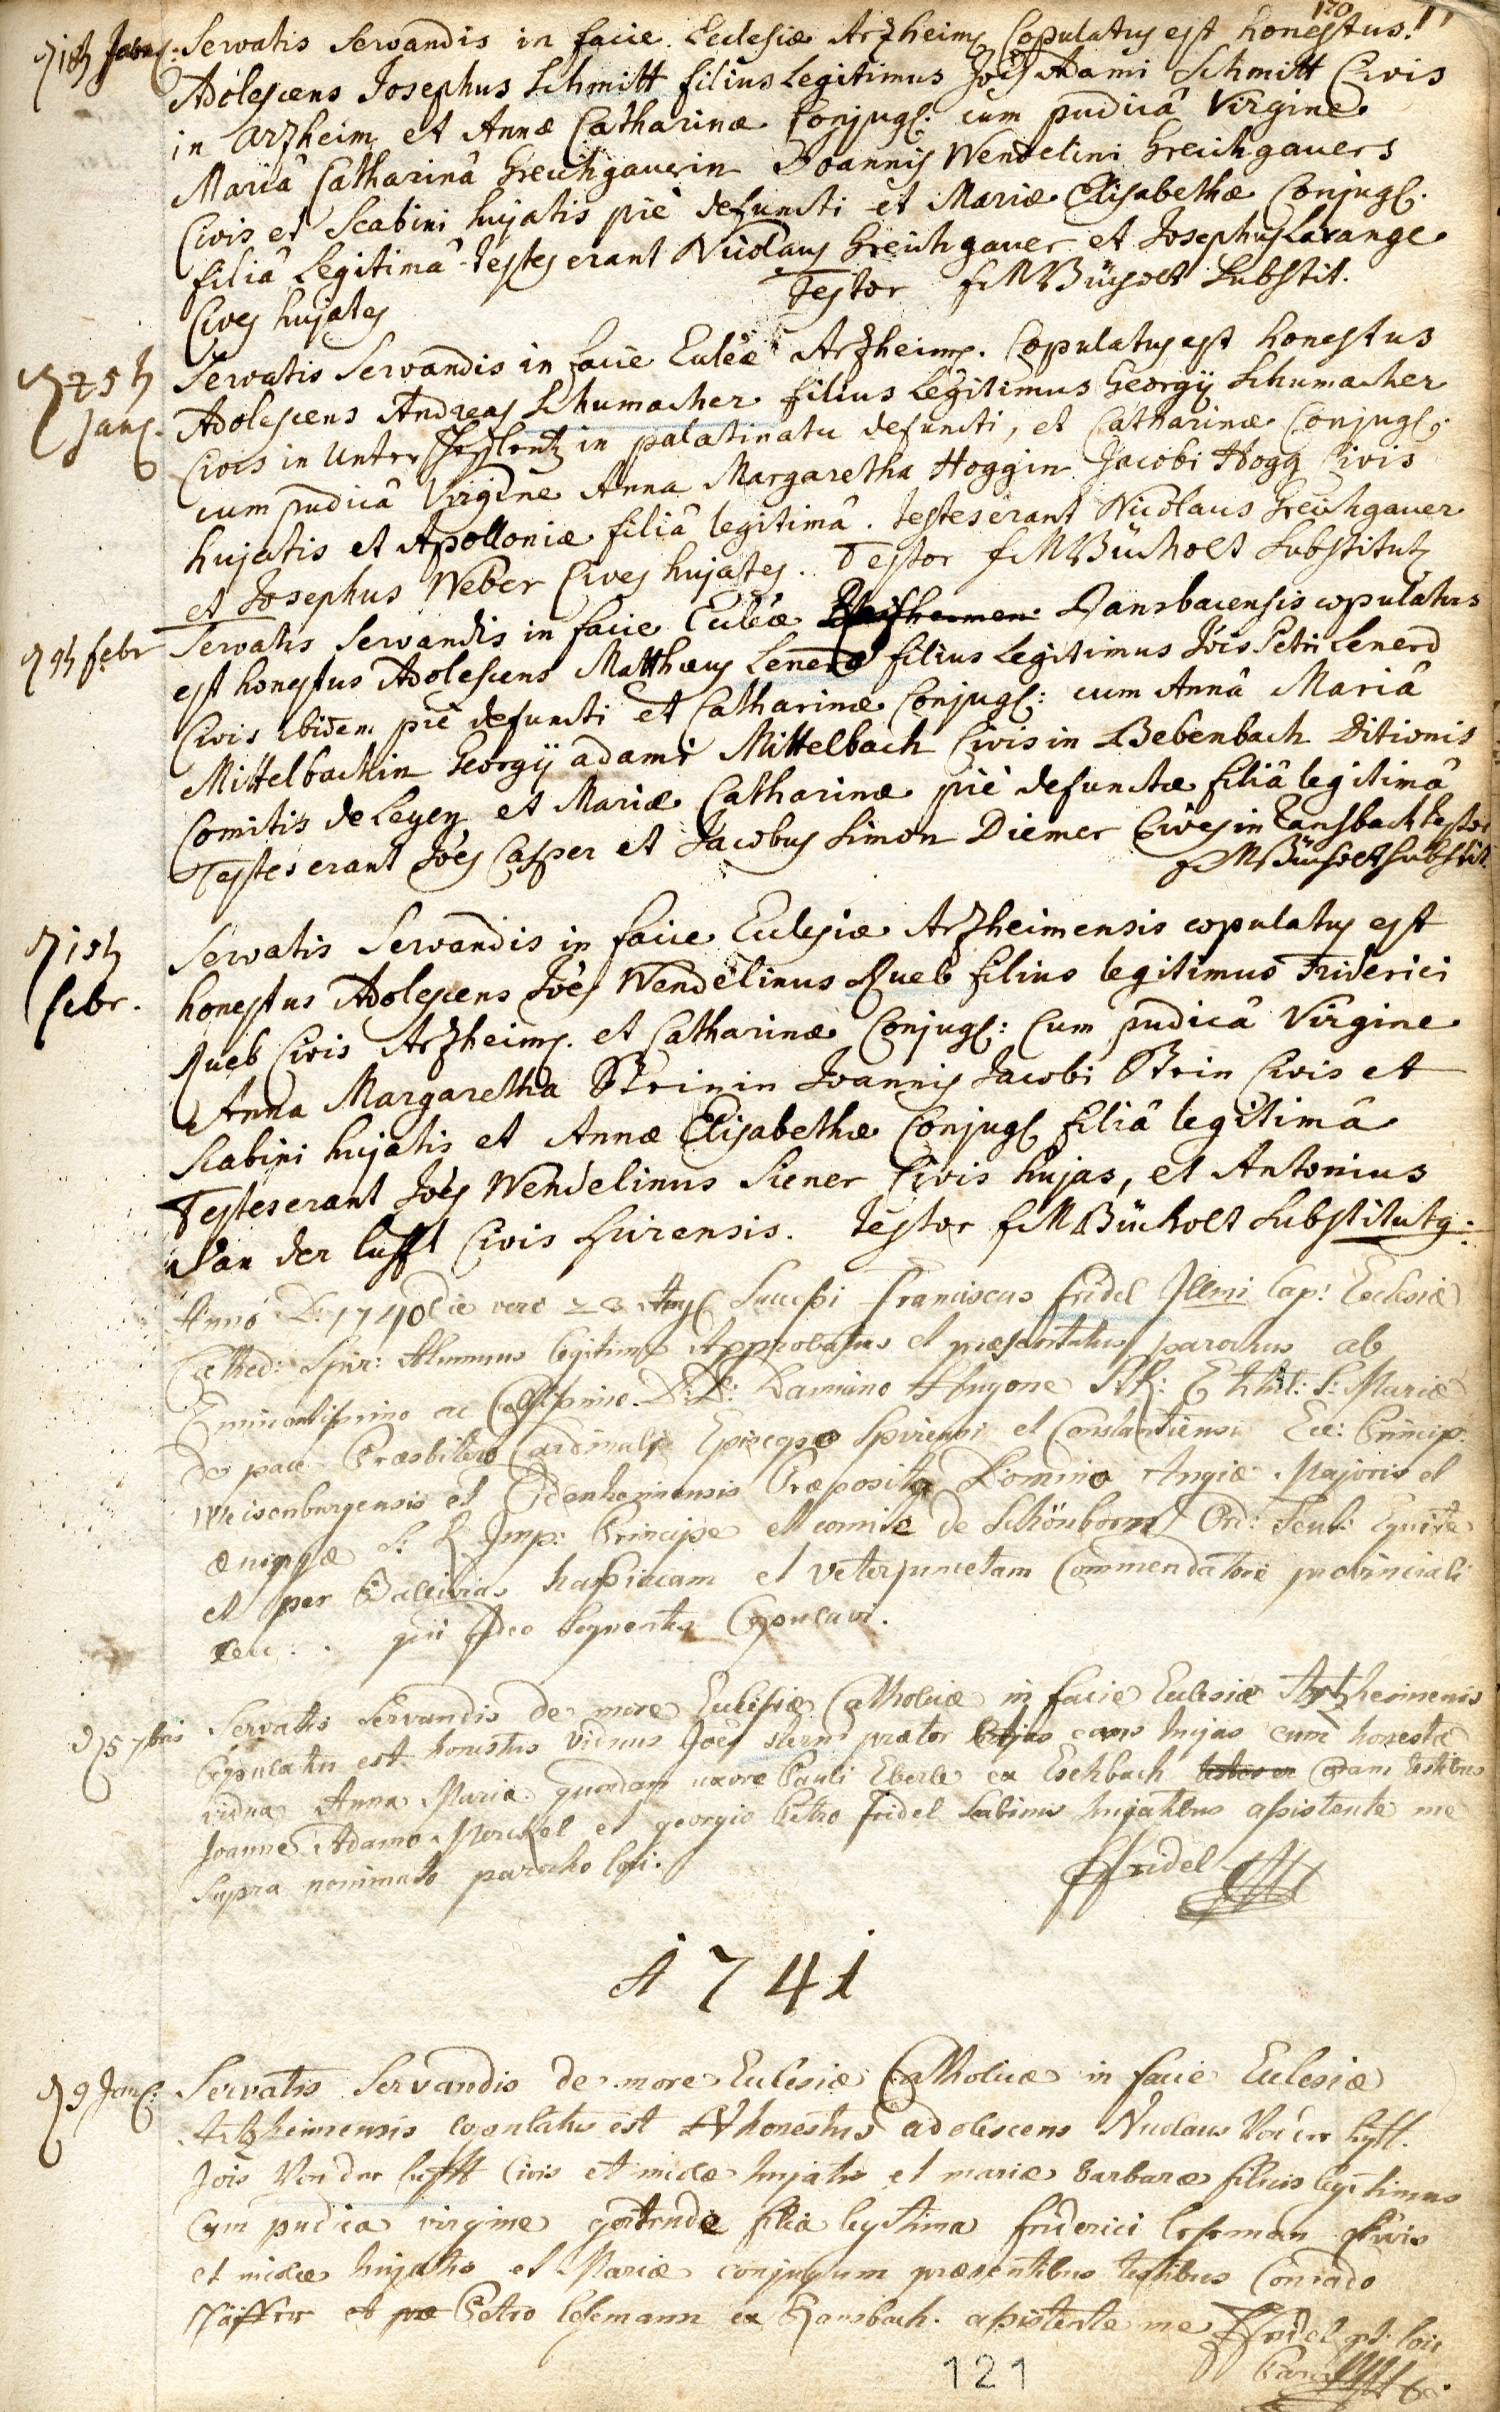 120
d 18t Janr: Servatis Servandis in facie Ecclesiæ Arzheims Copulatus est honestus
Adolescens Josephus Schmitt filius Legitimus Jois Adami Schmitt Civis
in Arzheim et Annæ Catharinæ Conjug: cum pudicâ Virgine
Mariâ Catharinâ Greichgauerin Joannis Wendelini Greichgauers
Civis et Scabini hujatis piè defuncti et Mariæ Elisabethæ Conjug.
filiâ Legitimâ Testes erant Nicolaus Greichgauer et Josephus Lavange
Cives hujates Testor f M Bücholt Substit.
d 25t Jan. Servatis Servandis in facie Eccleæ Arzheims. Copulatus est honestus
Adolescens Andreas Schumacher filius Legitimus Georgÿ Schumacher
Civis in Unter in palatinatu defuncti, et Catharinæ Conjug:
cum pudicâ Virgine Anna Margaretha Hoggin Jacobi Hogg Civis
hujatis et Apolloniæ filiâ legitimâ. Testes erant Nicolaus Greichgauer
et Josephus Weber Cives hujates. Testor f M Bücholt Substitut
d 9t febr Servatis Servandis in facie Eccleæ Ransbacensis copulatus
est honestus Adolescens Matthæus Lenerd filius Legitimus Jois Petri Lenerd
Civis ibidem piè defuncti et Catharinæ Conjug: cum Annâ Mariâ
Mittelbachin Georgÿ adami Mittelbach Civis in Bebenbach Ditionis
Comitis de Leyen et Mariæ Catharinæ piè defunctæ filiâ legitimâ
Testes erant Joes Casper et Jacobus Simon Diemer Cives in Ransbach testor
f M Bücholt Substit.
d 15t febr. Servatis Servandis in facie Ecclesiæ Arzheimensis copulatus est
honestus Adolescens Joes Wendelinus Rueb filius legitimus Friderici
Rueb Civis Arzheims. et Catharinæ Conjug: Cum pudicâ Virgine
Anna Margaretha Steinin Joannis Jacobi Stein Civis et
Scabini hujatis et Annæ Elisabethæ Conjug filiâ legitimâ
Testes erant Joes Wendelinus Siener Civis hujas, et Antonius
Van der lufft Civis Spirensis. Testor f M Bücholt Substitutq:
Anno D: 1740 die vero 28 Aug Successi Franciscus fridel Illmi Cap: Ecclesiæ
Cathed: Spir: Alumnus legitime Approbatus et præsentatus parochus ab
Eminentissimo ac Celsissimo D: D: Damiano Hugone S R: E tit: S: Mariæ
de pace Præsbitero Cardinali Episcopo Spirensi et Constantiensi Ecc: Princip:
Weisenburgensis et Odenheimensis Præposito Domino Majoris et
S: R Imp: Principe et comite de Schönborn Ord: Teut: Equite
et per Baleivias hassiacam et Veterjuncetam Commendatore provinciali
qui ideo sequentes Copulavi.
d 5 7bris Servatis Servandis de more Ecclesiæ Catholicæ in facie Ecclesiæ Artzheimensis
Copulatus est honestus Viduus Joes stern prætor hujas cum honesta
vidua Anna Maria quondam uxore Pauli Eberle ex Eschbach Coram testibus
Joanne Adamo Merckel et georgio Petro fridel Scabinis hujatibus assistente me
supra nominato parocho loci. Fridel
A 1741
d 9 Jan: Servatis Servandis de more Ecclesiæ Catholicæ in facie Ecclesiæ
Artzheimensis copulatus est honestus adolescens Nicolaus Von der lufft.
Jois Von der lufft Civis et incolæ hujatis et mariæ barbaræ filius legitimus
Cum pudica virgine gertrude filia legitima friderici lessman Civis
et incolæ hujatis et Mariæ conjugum præsentibus testibus Conrado
et Petro lessmann ex Ransbach. assistente me Fridel pt. loci
121